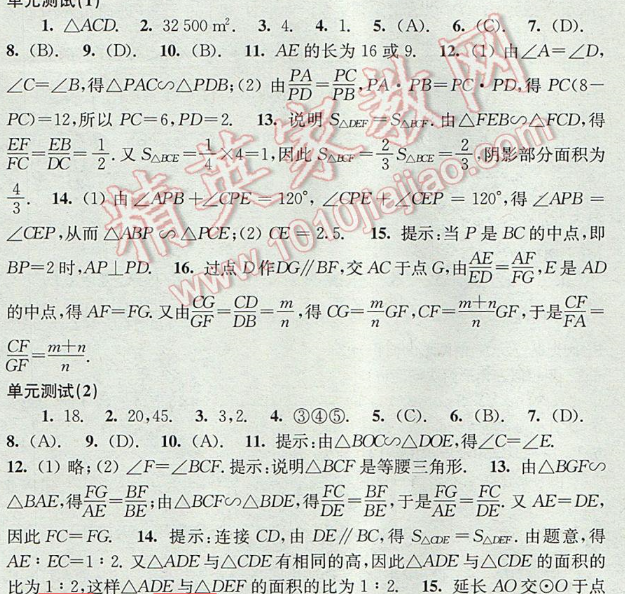 单元测试(1)
1. △ACD. 2. 32 500 m². 3. 4. 4. 1. 5. (A). 6. (C). 7. (D).
8. (B). 9. (D). 10. (B). 11. AE的长为16或9. 12. (1) 由∠A=∠D,
∠C=∠B,得△PAC∽△PDB;(2) 由PA/PD=PC/PB,PA·PB=PC·PD.得 PC(8-
PC)=12,所以 PC=6,PD=2. 13. 说明 S△DEF=S△BCF.由△FEB∽△FCD,得
EF/FC=EB/DC=1/2.又 S△BCE=1/4×4=1,因此 S△BCF=2/3 S△BCE=2/3.阴影部分面积为
4/3. 14. (1) 由∠APB+∠CPE=120°, ∠CPE+∠CEP=120°,得∠APB=
∠CEP,从而△ABP∽△PCE;(2) CE=2.5. 15. 提示:当 P 是 BC 的中点,即
BP=2时,AP⊥PD. 16. 过点D作DG∥BF,交 AC于点G,由AE/ED=AF/FG,E 是 AD
的中点,得 AF=FG.又由CG/GF=CD/DB=m/n,得 CG=m/n GF,CF=m+n/n GF,于是CF/FA=
CF/GF=m+n/n.
单元测试(2)
1. 18. 2. 20,45. 3. 3,2. 4. ③④⑤. 5. (C). 6. (B). 7. (D).
8. (A). 9. (D). 10. (A). 11. 提示:由△BOC∽△DOE,得∠C=∠E.
12. (1) 略;(2) ∠F=∠BCF.提示:说明△BCF 是等腰三角形. 13. 由△BGF∽
△BAE,得FG/AE=BF/BE;由△BCF∽△BDE,得FC/DE=BF/BE,于是FG/AE=FC/DE.又 AE=DE,
因此 FC=FG. 14. 提示:连接 CD,由 DE∥BC,得 S△CDE=S△DEF.由题意,得
AE∶EC=1∶2.又△ADE与△CDE有相同的高,因此△ADE与△CDE的面积的
比为1∶2,这样△ADE与△DEF的面积的比为1∶2. 15. 延长 AO交⊙O于点
精英家教网
www.1010jiajiao.com